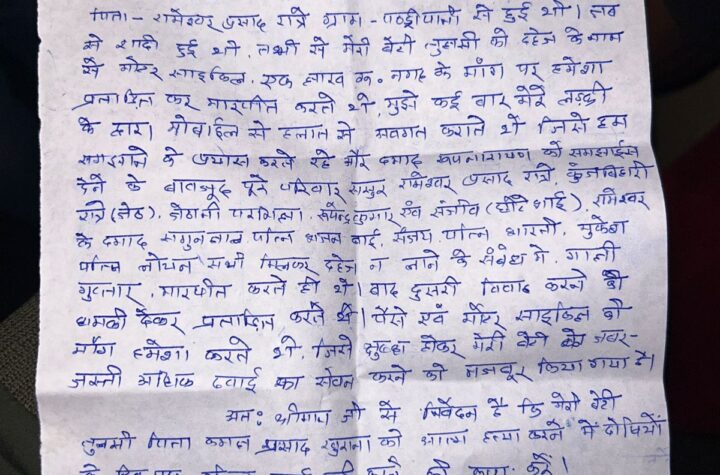 पिता - रामेश्वर प्रसाद रात्रे ग्राम - पण्ड्रीपानी से हुई थी। जब
से शादी हुई थी, तभी से मेरी बेटी तुलसी को दहेज के नाम
से मोटर साइकिल, एक लाख रू. नगद के माँग पर हमेशा
प्रताड़ित कर मारपीट करते थे, मुझे कई बार मेरे लड़की
के द्वारा मोबाईल से हलात से अवगत कराते थे जिसे हम
समझाने के प्रयास करते रहे और दमाद रूपनारायण को समझाईस
देने के बावजूद पूरे परिवार ससुर रामेश्वर प्रसाद रात्रे, कुंजबिहारी
रात्रे (जेठ), जेठानी परमिला, रूपेन्द्र कुमार एवं संजीव (छोटे भाई), रामेश्वर
के दमाद सगुनलाल पत्नि भजन बाई, संजय पत्नि भारती, मुकेश
पत्नि लोचन सभी मिलकर दहेज न लाने के संबंध में, गाली
गुलार, मारपीट करते ही थे। बाद दुसरी विवाद करने की
धमकी देकर प्रताड़ित करते थे। पैसे एवं मोटर साइकिल की
माँग हमेशा करते थे, जिसे क्षुब्ध होकर मेरी बेटी को जबर-
जस्ती अधिक दवाई का सेवन करने को मजबूर किया गया है।
अतः श्रीमान जी से निवेदन है कि मेरी बेटी
तुलसी पिता कमल प्रसाद खुराना को आत्म हत्या करने में दोषियों